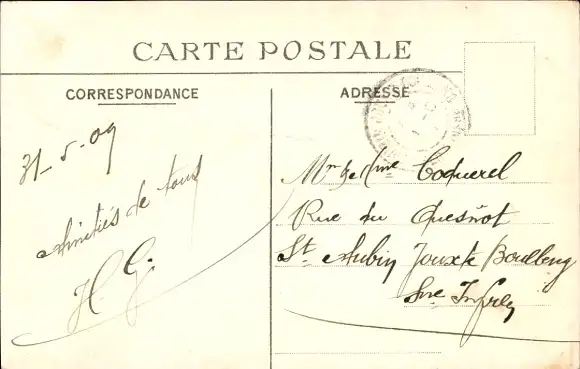 CARTE POSTALE
CORRESPONDANCE
ADRESSE
31-5-09
Amitiés de tous
H. G.
Mr & Mme Coquerel
Rue du Quesnot
St Aubin Jouxte Boulleng
Sne Infre